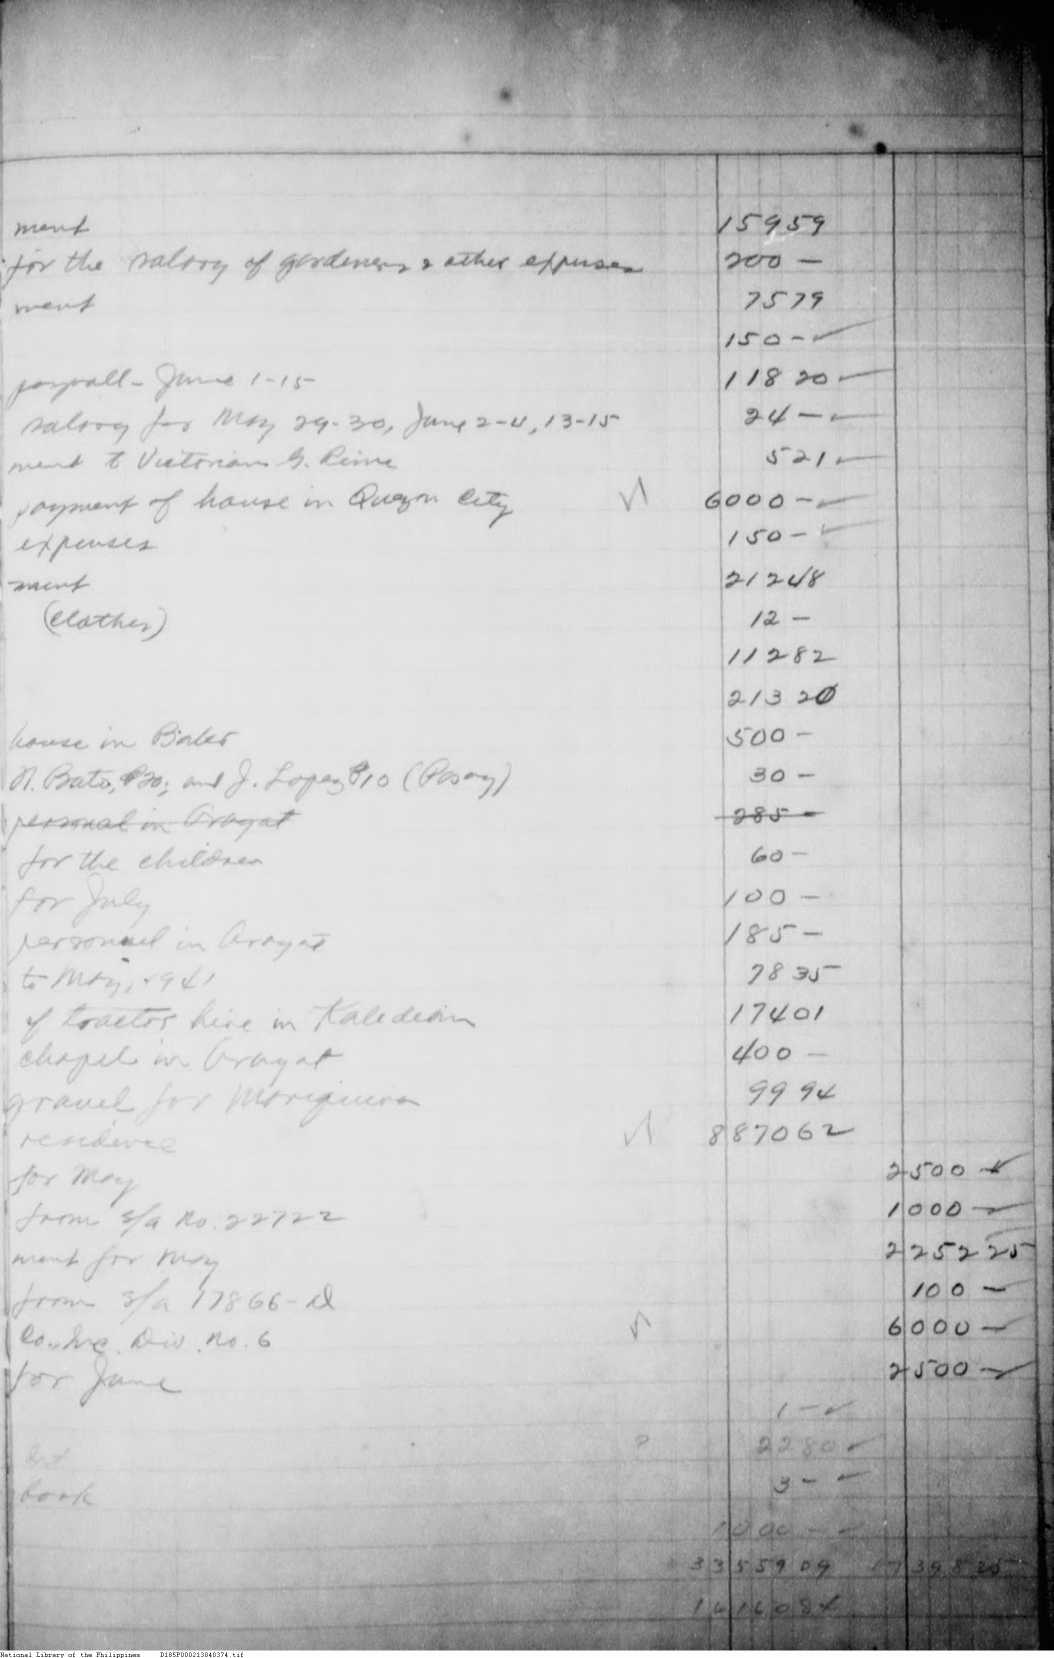 ment 15959
for the salary of gardeners & other expenses 200 —
ment 7579
150 — ✓
payroll - June 1-15 11820 ✓
salary for May 29-30, June 2-4, 13-15 24 — ✓
ment to Victoriano G. 521 ✓
payment of house in Quezon City √ 6000 — ✓
expenses 150 — ✓
ment 21248
(clothes) 12 —
11282
21320
house in Baler 500 —
N. Bato, ₱20; and J. Lopez ₱10 (Pasay) 30 —
personal in Arayat 285 —
for the children 60 —
for July 100 —
personnel in Arayat 185 —
to May, 1941 7835
of tractor hire in Kaledian 17401
chapel in Arayat 400 —
gravel for Mariquina 9994
residence √ 887062
for May 2500 ✓
from s/a no. 22722 1000 ✓
ment for May 225225
from s/a 17866-D 100 —
Co. Inc. Div. no. 6 √ 6000 —
for June 2500 — ✓
1 — ✓
? 2280 ✓
book 3 — ✓
1000 — ✓
3355909 1739825
1616084
National Library of the Philippines D185P000213040374.tif